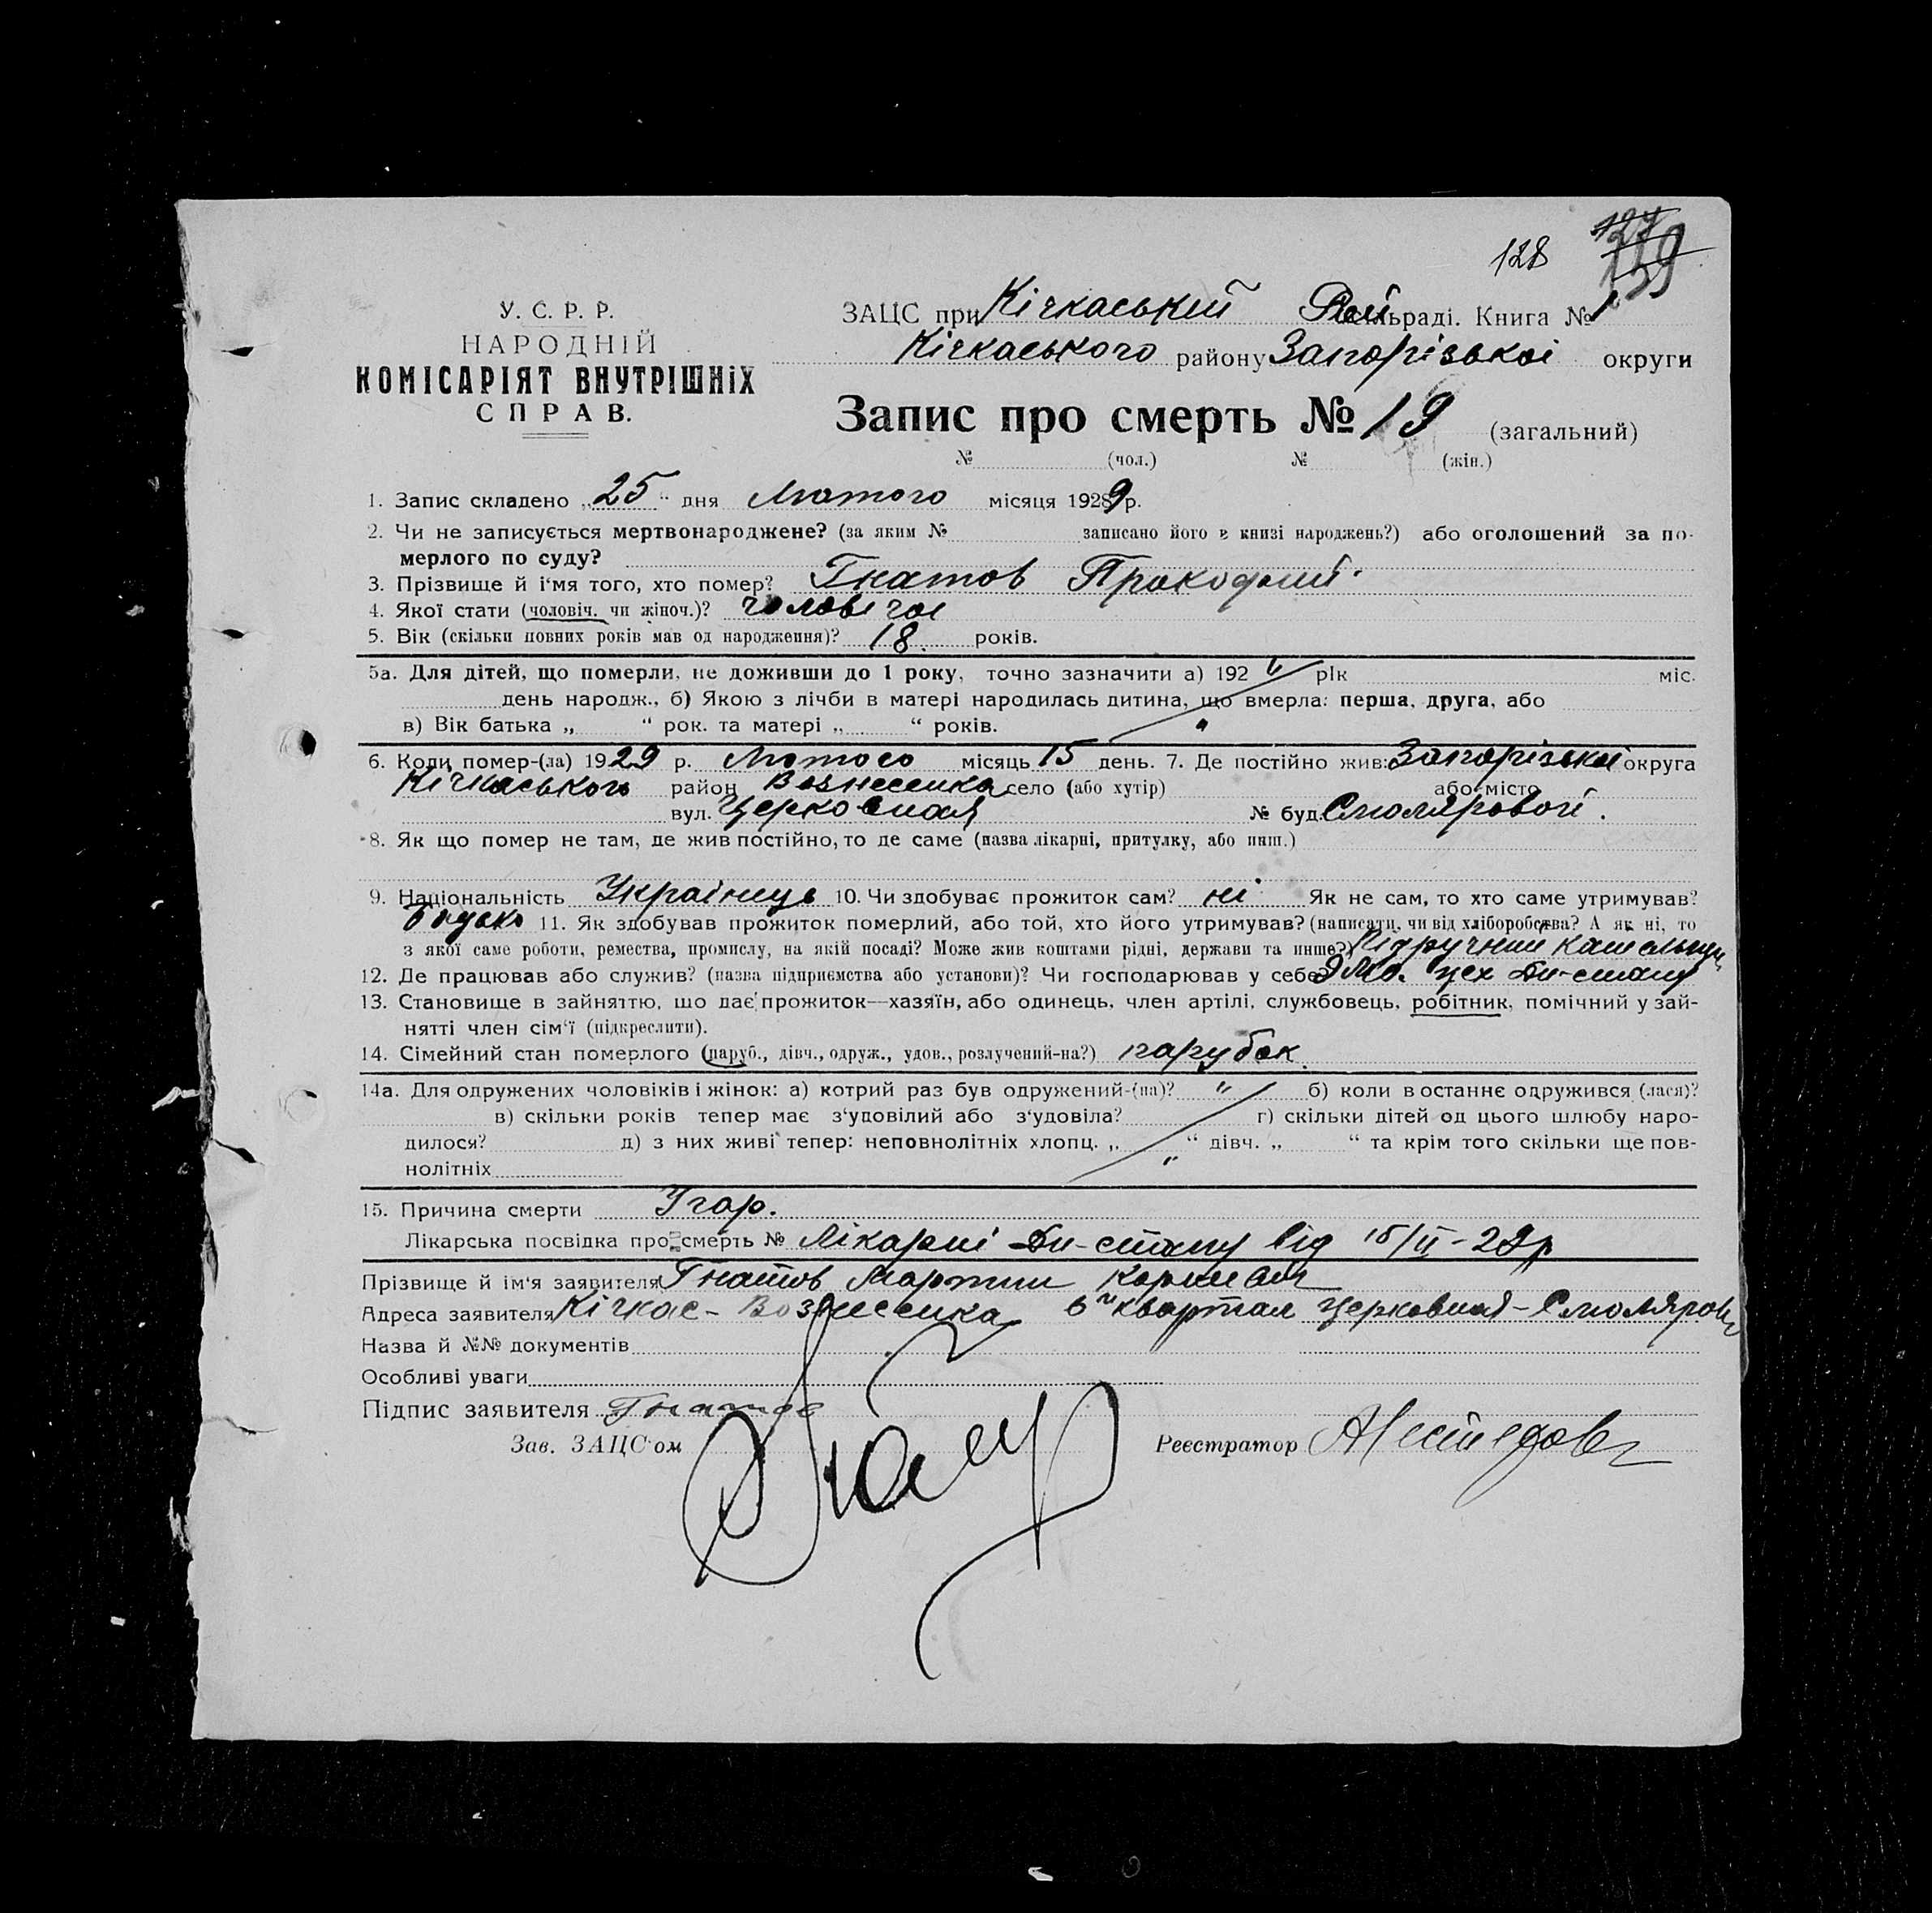 128 127
У. С. Р. Р.
НАРОДНІЙ
КОМІСАРІЯТ ВНУТРІШНІХ
СПРАВ.
ЗАЦС при Кічкаський Рай сільраді. Книга № 1
Кічкаського району Запорізької округи
Запис про смерть № 19 (загальний)
№ (чол.) № (жін.)
1. Запис складено „25“ дня Лютого місяця 1929 р.
2. Чи не записується мертвонароджене? (за яким № записано його в книзі народжень?) або оголошений за по-
мерлого по суду?
3. Прізвище й і'мя того, хто помер? Гнатов Прокофий
4. Якої стати (чоловіч. чи жіноч.)? чоловічої
5. Вік (скільки повних років мав од народження)? 18 років.
5а. Для дітей, що померли, не доживши до 1 року, точно зазначити а) 192 " рік міс.
день народж., б) Якою з лічби в матері народилась дитина, що вмерла: перша, друга, або
в) Вік батька „ “ рок. та матері „ “ років. "
6. Коли помер-(ла) 1929 р. Лютого місяць 15 день. 7. Де постійно жив: Запорізької округа
Кічкаського район Вознесенка село (або хутір) або місто
вул. Церковная № буд. Смолярової.
8. Як що помер не там, де жив постійно, то де саме (назва лікарні, притулку, або инш.)
9. Національність Українець 10. Чи здобуває прожиток сам? ні Як не сам, то хто саме утримував?
11. Як здобував прожиток померлий, або той, хто його утримував? (написати, чи від хліборобства? А як ні, то
з якої саме роботи, ремества, промислу, на якій посаді? Може жив коштами рідні, держави та инше?) Підручний
12. Де працював або служив? (назва підприємства або установи)? Чи господарював у себе? цех
13. Становище в зайняттю, що дає прожиток—хазяїн, або одинець, член артілі, службовець, робітник, помічний у зай-
нятті член сім'ї (підкреслити).
14. Сімейний стан померлого (паруб., дівч., одруж., удов., розлучений-на?) парубок
14а. Для одружених чоловіків і жінок: а) котрий раз був одружений-(на)? " б) коли в останнє одружився (лася)?
в) скільки років тепер має з'удовілий або з'удовіла? г) скільки дітей од цього шлюбу наро-
дилося? д) з них живі тепер: неповнолітніх хлопц. „ “ дівч. „ “ та крім того скільки ще пов-
нолітніх "
15. Причина смерти Угар.
Лікарська посвідка про смерть № Лікарні Дн-стану від 15/II-29р
Прізвище й ім'я заявителя Гнатов Мартин
Адреса заявителя Кічкас- Вознесенка 6й квартал Церковная-Смолярової
Назва й №№ документів
Особливі уваги
Підпис заявителя Гнатов
Зав. ЗАЦС'ом Реєстратор